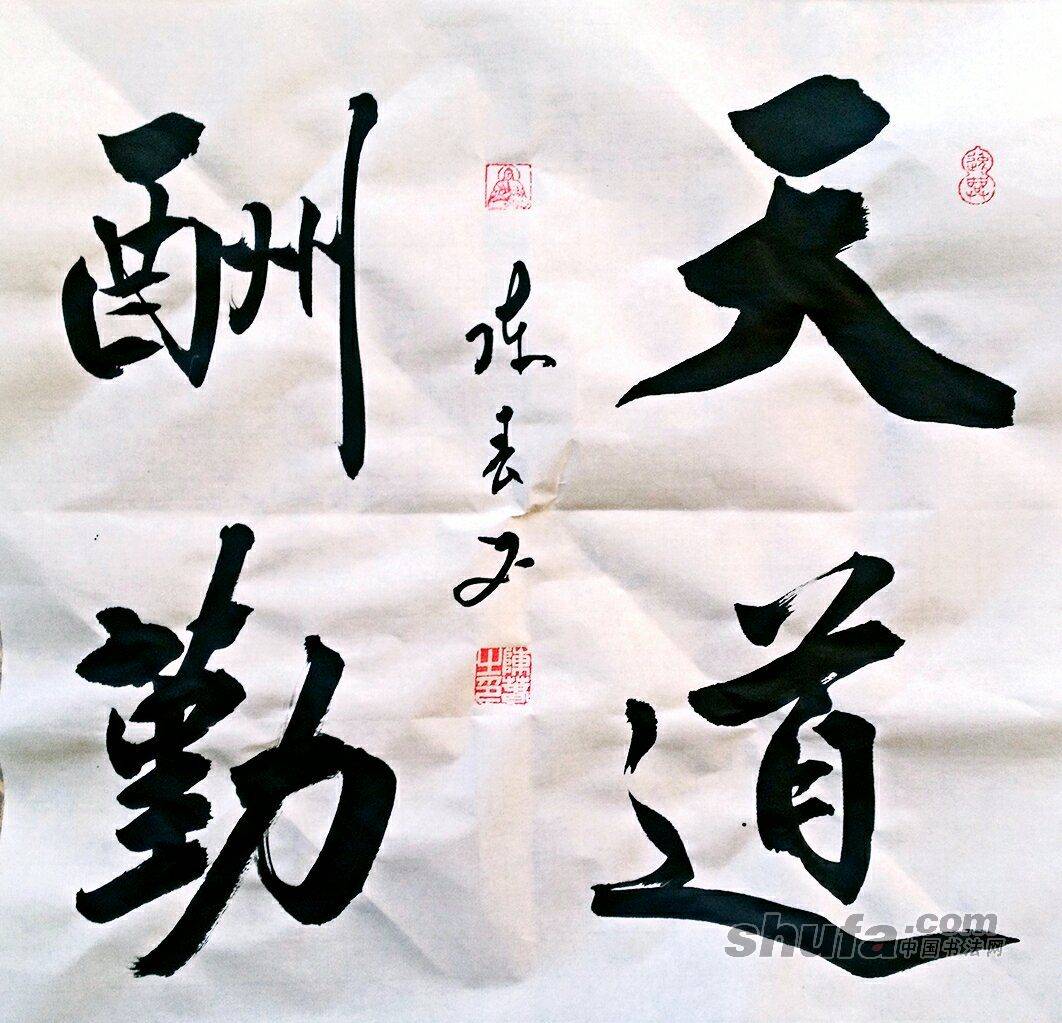 天道
酬勤
陈
shufa.com
中国书法网